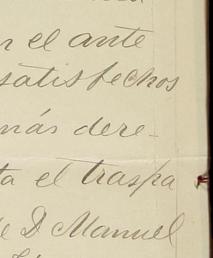 n el ante
satisfechos
más dere-
ta el traspa
de D Manuel